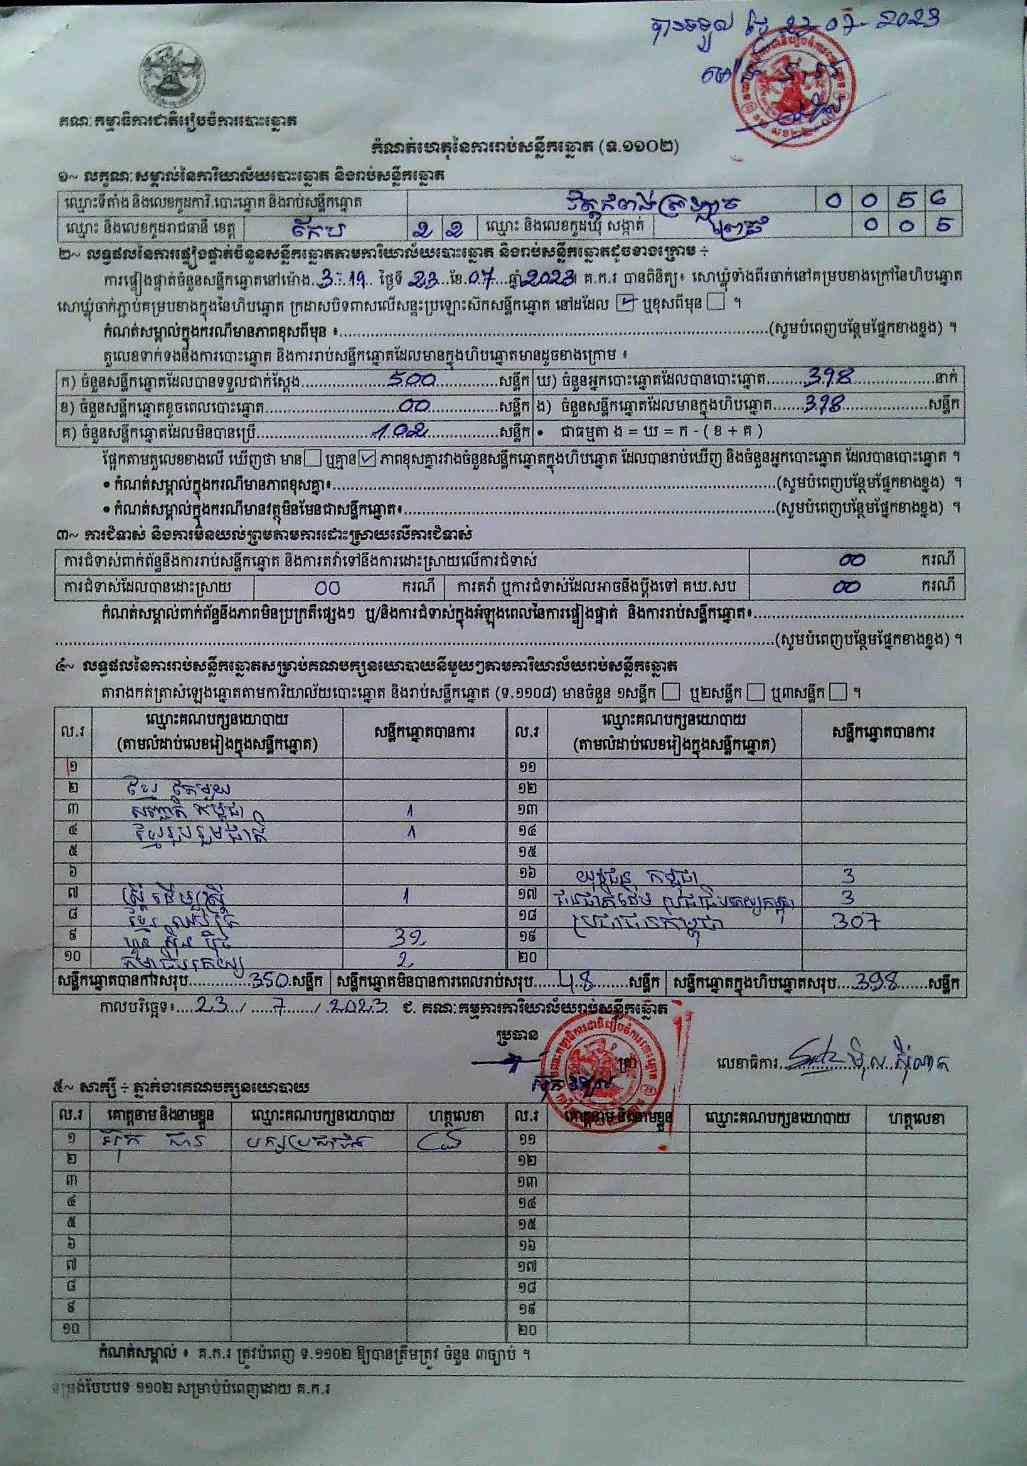 បានទទួល ថ្ងៃ 23-07-2023
គណៈកម្មាធិការជាតិរៀបចំការបោះឆ្នោត
កំណត់ហេតុនៃការរាប់សន្លឹកឆ្នោត (ទ.១១០២)
១~ លក្ខណៈសម្គាល់នៃការិយាល័យបោះឆ្នោត និងរាប់សន្លឹកឆ្នោត
ឈ្មោះទីតាំង និងលេខកូដការិ.បោះឆ្នោត និងរាប់សន្លឹកឆ្នោត 0 0 5 6
ឈ្មោះ និងលេខកូដរាជធានី ខេត្ត កែប 2 2 ឈ្មោះ និងលេខកូដឃុំ សង្កាត់ ព្រៃធំ 0 0 5
២~ លទ្ធផលនៃការផ្ទៀងផ្ទាត់ចំនួនសន្លឹកឆ្នោតតាមការិយាល័យបោះឆ្នោត និងរាប់សន្លឹកឆ្នោតដូចខាងក្រោម ÷
ការផ្ទៀងផ្ទាត់ចំនួនសន្លឹកឆ្នោតនៅម៉ោង 3:19 ថ្ងៃទី 23 ខែ 07 ឆ្នាំ 2023 គ.ក.រ បានពិនិត្យ៖ សោឃ្លុំទាំងពីរចាក់នៅគម្របខាងក្រៅនៃហិបឆ្នោត
សោឃ្លុំចាក់ភ្ជាប់គម្របខាងក្នុងនៃហិបឆ្នោត ក្រដាសបិទពាសលើសន្ទះប្រឡោះស៊កសន្លឹកឆ្នោត នៅដដែល ☑ ឬខុសពីមុន ☐ ។
កំណត់សម្គាល់ក្នុងករណីមានភាពខុសពីមុន ៖ (សូមបំពេញបន្ថែមផ្នែកខាងខ្នង) ។
តួលេខទាក់ទងនឹងការបោះឆ្នោត និងការរាប់សន្លឹកឆ្នោតដែលមានក្នុងហិបឆ្នោតមានដូចខាងក្រោម ៖
ក) ចំនួនសន្លឹកឆ្នោតដែលបានទទួលជាក់ស្តែង 500 សន្លឹក ឃ) ចំនួនអ្នកបោះឆ្នោតដែលបានបោះឆ្នោត 398 នាក់
ខ) ចំនួនសន្លឹកឆ្នោតខូចពេលបោះឆ្នោត 00 សន្លឹក ង) ចំនួនសន្លឹកឆ្នោតដែលមានក្នុងហិបឆ្នោត 398 សន្លឹក
គ) ចំនួនសន្លឹកឆ្នោតដែលមិនបានប្រើ 102 សន្លឹក • ជាធម្មតា ង = ឃ = ក - ( ខ + គ )
ផ្អែកតាមតួលេខខាងលើ ឃើញថា មាន ☐ ឬគ្មាន ☑ ភាពខុសគ្នារវាងចំនួនសន្លឹកឆ្នោតក្នុងហិបឆ្នោត ដែលបានរាប់ឃើញ និងចំនួនអ្នកបោះឆ្នោត ដែលបានបោះឆ្នោត ។
• កំណត់សម្គាល់ក្នុងករណីមានភាពខុសគ្នា៖ (សូមបំពេញបន្ថែមផ្នែកខាងខ្នង) ។
• កំណត់សម្គាល់ក្នុងករណីមានវត្ថុមិនមែនជាសន្លឹកឆ្នោត៖ (សូមបំពេញបន្ថែមផ្នែកខាងខ្នង) ។
៣~ ការជំទាស់ និងការមិនយល់ព្រមតាមការដោះស្រាយលើការជំទាស់
ការជំទាស់ពាក់ព័ន្ធនឹងការរាប់សន្លឹកឆ្នោត និងការតវ៉ាទៅនឹងការដោះស្រាយលើការជំទាស់ 00 ករណី
ការជំទាស់ដែលបានដោះស្រាយ 00 ករណី ការតវ៉ា ឬការជំទាស់ដែលអាចនឹងប្តឹងទៅ គឃ.សប 00 ករណី
កំណត់សម្គាល់ពាក់ព័ន្ធនឹងភាពមិនប្រក្រតីផ្សេងៗ ឬ/និងការជំទាស់ក្នុងអំឡុងពេលនៃការផ្ទៀងផ្ទាត់ និងការរាប់សន្លឹកឆ្នោត៖
(សូមបំពេញបន្ថែមផ្នែកខាងខ្នង) ។
៤~ លទ្ធផលនៃការរាប់សន្លឹកឆ្នោតសម្រាប់គណបក្សនយោបាយនីមួយៗតាមការិយាល័យរាប់សន្លឹកឆ្នោត
តារាងកត់ត្រាសំឡេងឆ្នោតតាមការិយាល័យបោះឆ្នោត និងរាប់សន្លឹកឆ្នោត (ទ.១១០៨) មានចំនួន ១សន្លឹក ☐ ឬ២សន្លឹក ☐ ឬ៣សន្លឹក ☐ ។
ល.រ ឈ្មោះគណបក្សនយោបាយ (តាមលំដាប់លេខរៀងក្នុងសន្លឹកឆ្នោត) សន្លឹកឆ្នោតបានការ ល.រ ឈ្មោះគណបក្សនយោបាយ (តាមលំដាប់លេខរៀងក្នុងសន្លឹកឆ្នោត) សន្លឹកឆ្នោតបានការ
១ ១១
២ ខ្មែរ តែមួយ ១២
៣ សញ្ជាតិ កម្ពុជា 1 ១៣
៤ ខ្មែររួបរួមជាតិ 1 ១៤
៥ ១៥
៦ ១៦ យុវជន កម្ពុជា 3
៧ ស្ត្រី ដើម្បីស្ត្រី 1 ១៧ ជនជាតិដើម ប្រជាធិបតេយ្យកម្ពុជា 3
៨ ខ្មែរ ឈប់ក្រ ១៨ ប្រជាជនកម្ពុជា 307
៩ ហ្វ៊ុនស៊ិនប៉ិច 32 ១៩
១០ កម្លាំងប្រជាធិបតេយ្យ 2 ២០
សន្លឹកឆ្នោតបានការសរុប 350 សន្លឹក សន្លឹកឆ្នោតមិនបានការពេលរាប់សរុប 48 សន្លឹក សន្លឹកឆ្នោតក្នុងហិបឆ្នោតសរុប 398 សន្លឹក
កាលបរិច្ឆេទ៖ 23 / 7 / 2023 ជ. គណៈកម្មការការិយាល័យរាប់សន្លឹកឆ្នោត
ប្រធាន
លេខាធិការ
៥~ សាក្សី ÷ ភ្នាក់ងារគណបក្សនយោបាយ
ល.រ គោត្តនាម និងនាមខ្លួន ឈ្មោះគណបក្សនយោបាយ ហត្ថលេខា ល.រ គោត្តនាម និងនាមខ្លួន ឈ្មោះគណបក្សនយោបាយ ហត្ថលេខា
១ ១១
២ ១២
៣ ១៣
៤ ១៤
៥ ១៥
៦ ១៦
៧ ១៧
៨ ១៨
៩ ១៩
១០ ២០
កំណត់សម្គាល់ ៖ គ.ក.រ ត្រូវបំពេញ ទ.១១០២ ឱ្យបានត្រឹមត្រូវ ចំនួន ៣ច្បាប់ ។
ទម្រង់បែបបទ ១១០២ សម្រាប់បំពេញដោយ គ.ក.រ